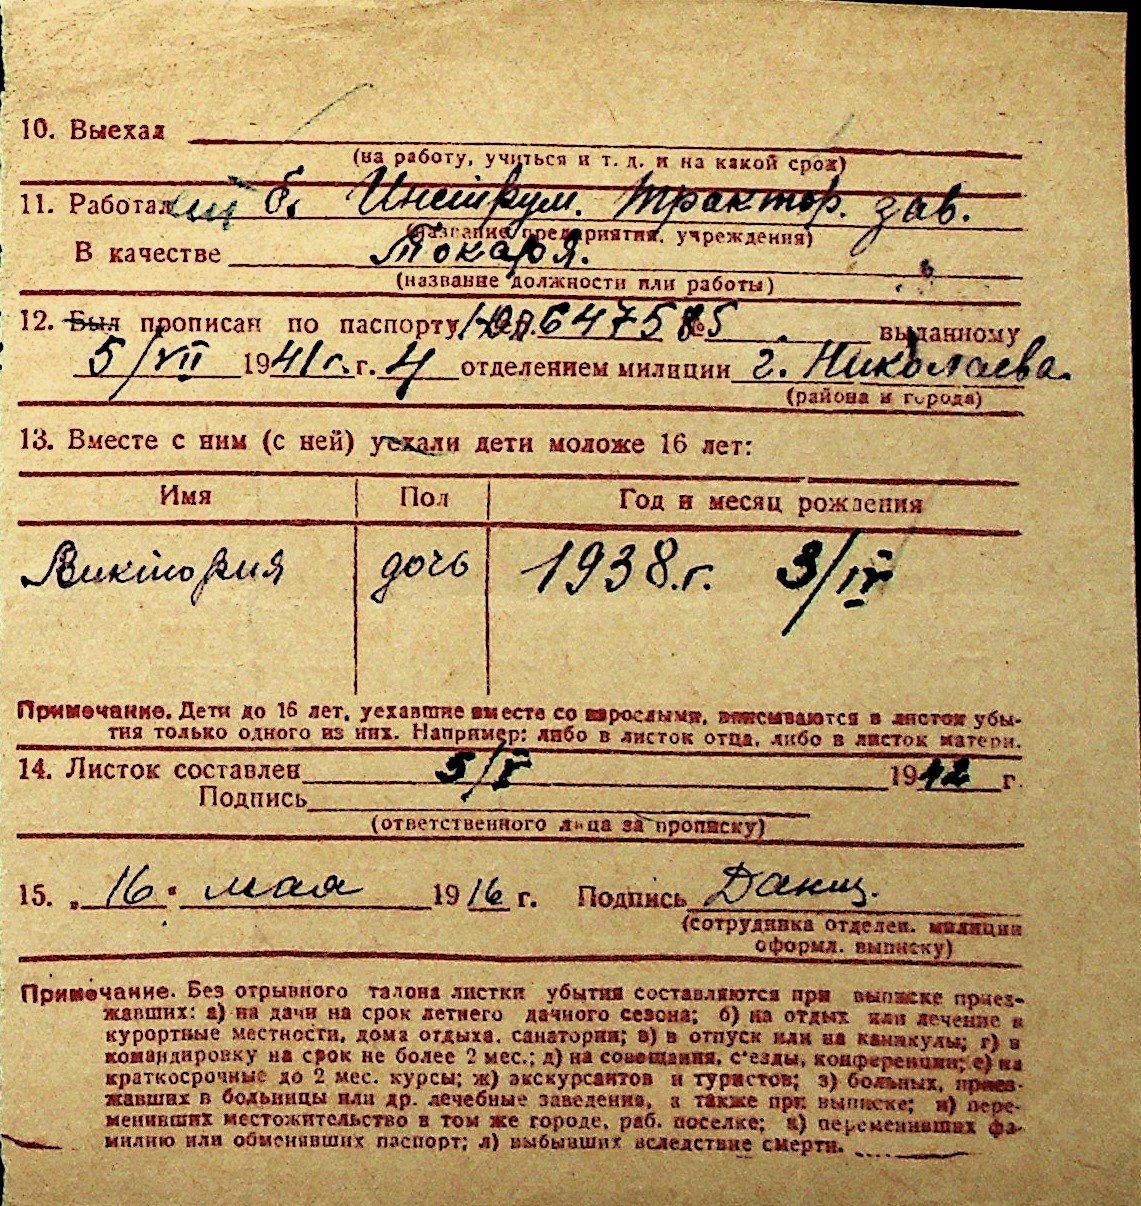 10. Выехал
(на работу, учиться и т. д. и на какой срок)
11. Работал б. Инструм. трактор. зав.
(название предприятия, учреждения)
В качестве токаря.
(название должности или работы)
12. Был прописан по паспорту выданному
5/VII 1941 г. г. 4 отделением милиции г. Николаева.
(района и города)
13. Вместе с ним (с ней) уехали дети моложе 16 лет:
Имя Пол Год и месяц рождения
Виктория дочь 1938.г. 3/IV
Примечание. Дети до 16 лет, уехавшие вместе со взрослыми, вписываются в листок убы-
тия только одного из них. Например: либо в листок отца, либо в листок матери.
14. Листок составлен 5/V 1942 г.
Подпись
(ответственного лица за прописку)
15. „ 16 " мая 1916 г. Подпись
(сотрудника отделен. милиции
оформл. выписку)
Примечание. Без отрывного талона листки убытия составляются при выписке приез-
жавших: а) на дачи на срок летнего дачного сезона; б) на отдых или лечение в
курортные местности, дома отдыха, санатории; в) в отпуск или на каникулы; г) в
командировку на срок не более 2 мес.; д) на совещания, с'езды, конференции; е) на
краткосрочные до 2 мес. курсы; ж) экскурсантов и туристов; з) больных, приез-
жавших в больницы или др. лечебные заведения, а также при выписке; и) пере-
менивших местожительство в том же городе, раб. поселке; к) переменивших фа-
милию или обменявших паспорт; л) выбывших вследствие смерти.